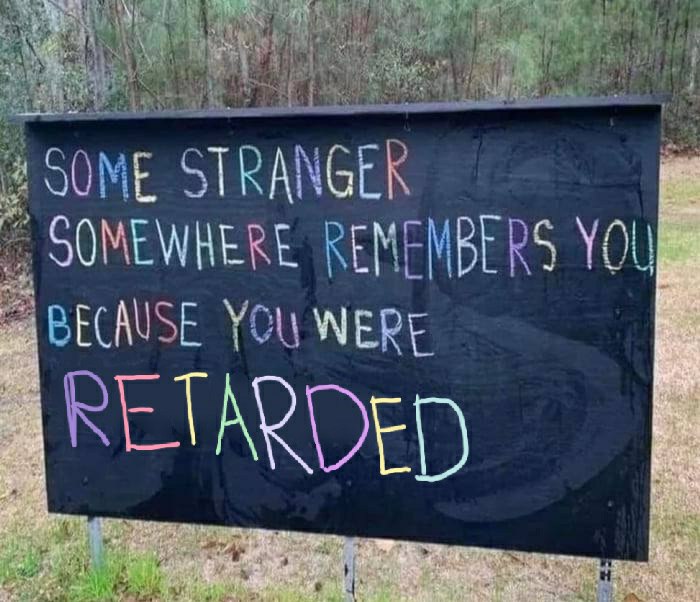 SOME STRANGER
SOMEWHERE REMEMBERS YOU
BECAUSE YOU WERE
RETARDED